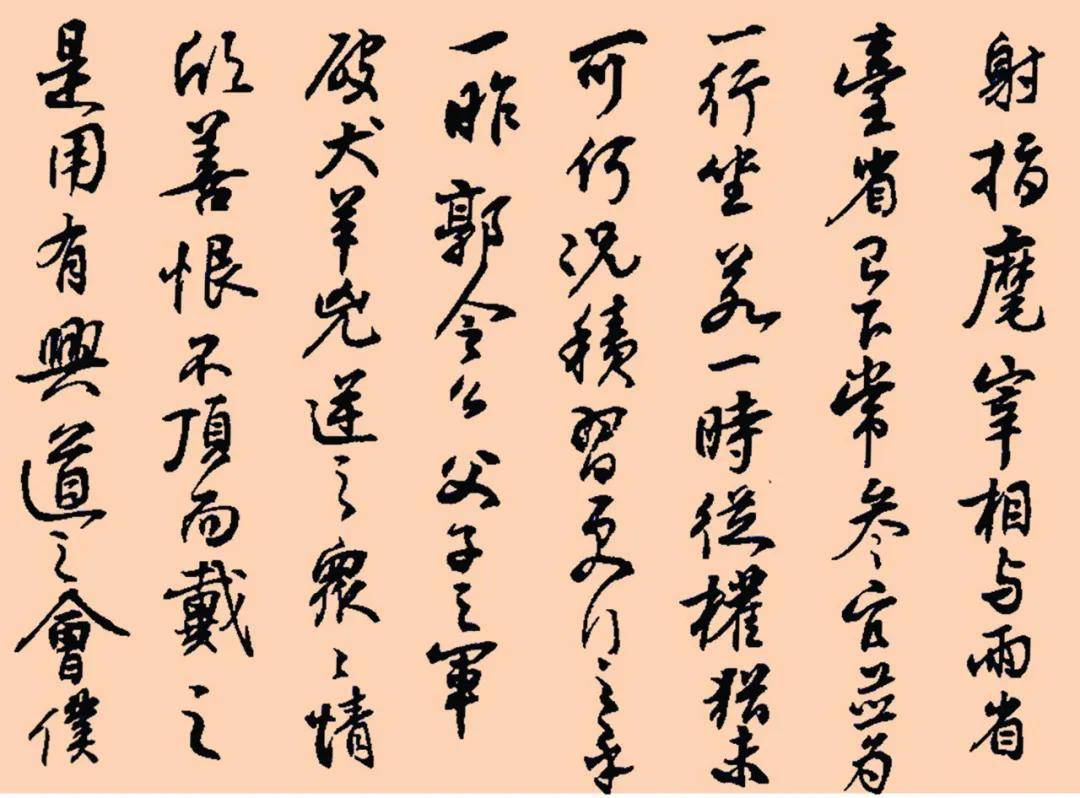 射指麾宰相与兩省
臺省已下常叅官並为
一行坐若一時從權猶未
可何況積習更行之乎
一昨郭令公父子之軍
破犬羊兇逆之衆〻情
欣善恨不頂而戴之
是用有興道之會僕